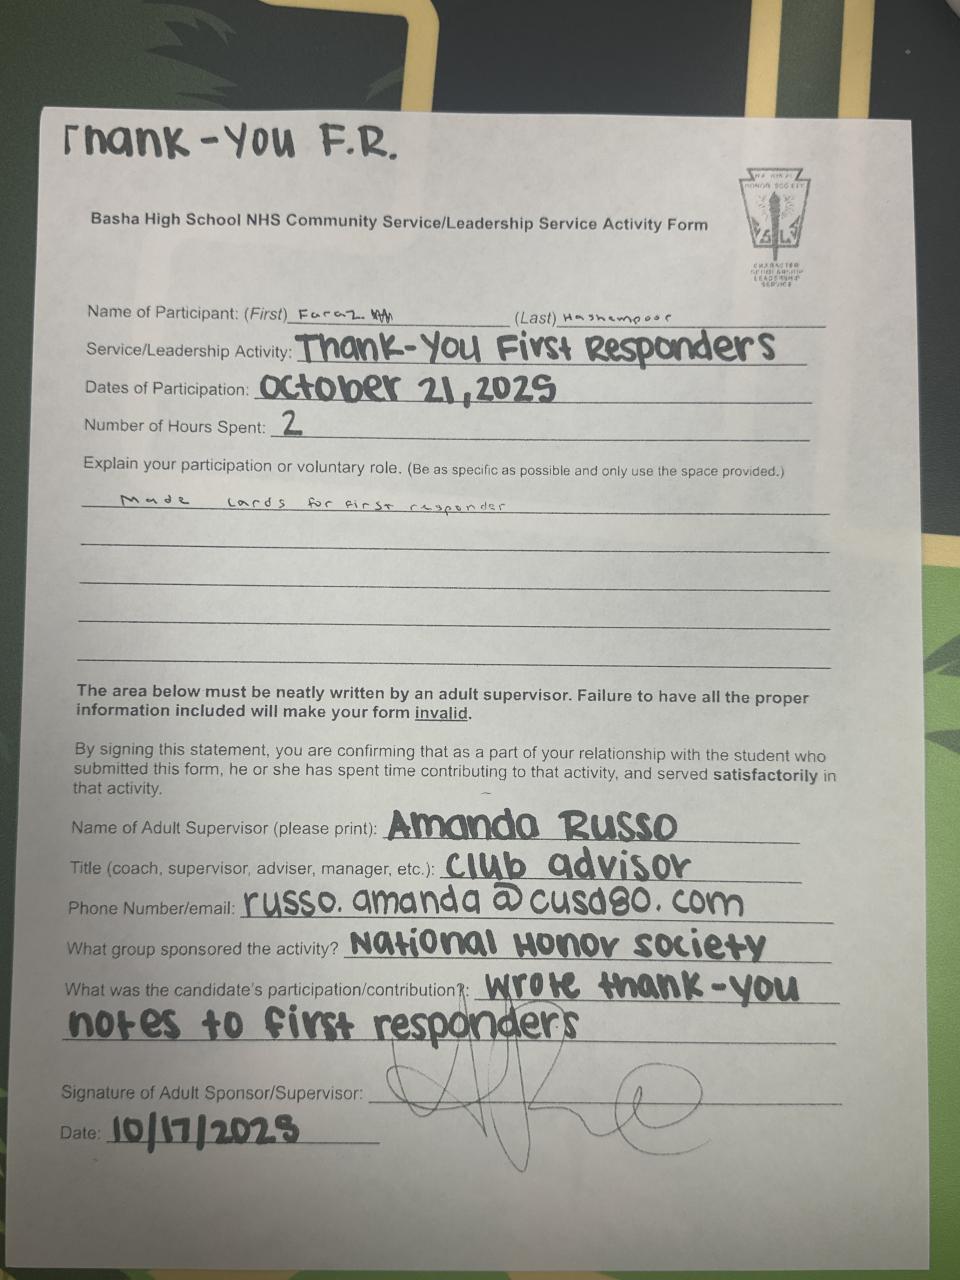 Thank-You F.R.
HONOR SOCIETY
CHARACTER
SCHOLARSHIP
LEADERSHIP
SERVICE
Basha High School NHS Community Service/Leadership Service Activity Form
Name of Participant: (First) Faraz (Last) Hashempoor
Service/Leadership Activity: Thank-You First Responders
Dates of Participation: October 21, 2025
Number of Hours Spent: 2
Explain your participation or voluntary role. (Be as specific as possible and only use the space provided.)
Made cards for first responder
The area below must be neatly written by an adult supervisor. Failure to have all the proper
information included will make your form invalid.
By signing this statement, you are confirming that as a part of your relationship with the student who
submitted this form, he or she has spent time contributing to that activity, and served satisfactorily in
that activity.
Name of Adult Supervisor (please print): Amanda Russo
Title (coach, supervisor, adviser, manager, etc.): Club advisor
Phone Number/email: russo.amanda@cusd80.com
What group sponsored the activity? National Honor Society
What was the candidate's participation/contribution?: wrote thank-you
notes to first responders
Signature of Adult Sponsor/Supervisor:
Date: 10/17/2025